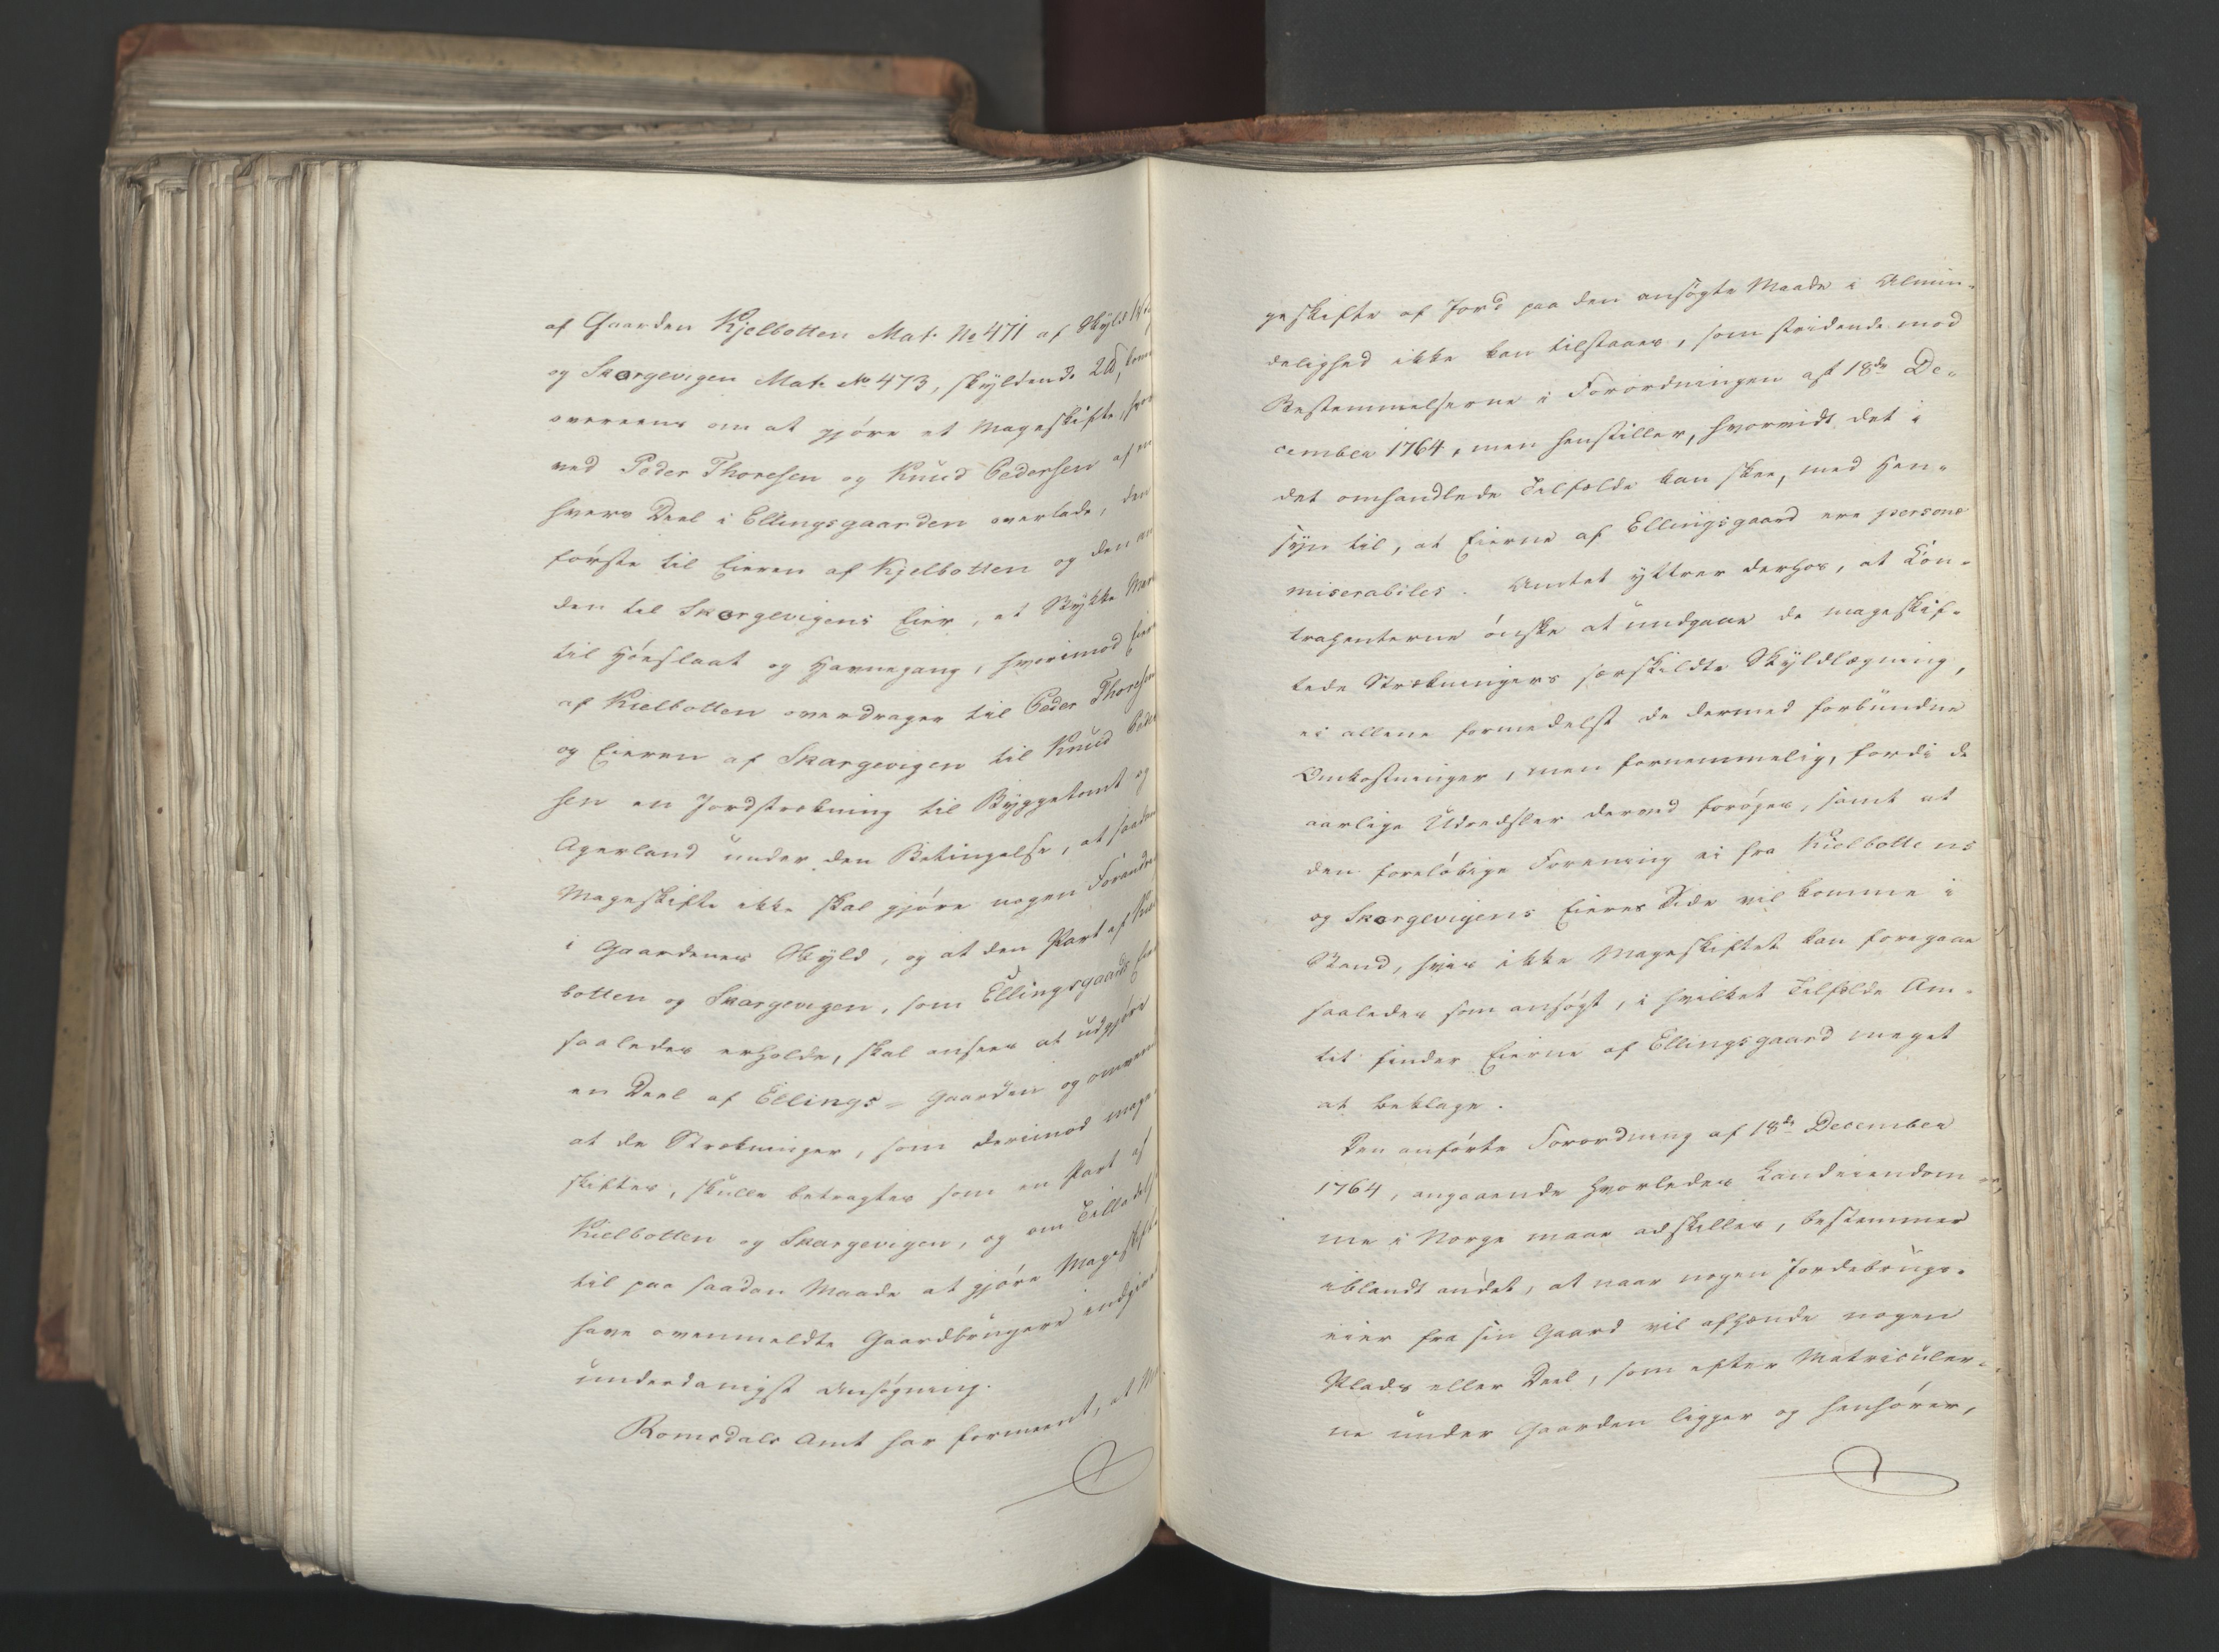 af Gaarden Kjelbotten Mat. No 471 af Skyld
og Skargevigen Mat. No 473, skyldende 2
overeens om at gjöre et Mageskifte, hvor
ved Peder Thoresen og Knud Pedersen af en
hvers Deel i Ellingsgaarden overlade, den
förste til Eieren af Kjelbotten og den an
den til Skargevigens Eier, et Stykke Mark
til Höeslaat og Havnegang, hvorimod Eieren
af Kielbotten overdrager til Peder Thoresen
og Eieren af Skargevigen til Knud Peder
sen en Jordstrækning til Byggetomt og
Agerland under den Betingelse, at saadant
Mageskifte ikke skal gjöre nogen Forandring
i Gaardenes Skyld, og at den Part af Kiel
botten og Skargevigen, som Ellingsgaards Eiere
saaledes erholde, skal ansees at udgjöre
en Deel af Ellings- Gaarden og omvendt
at de Strækninger, som derimod mage
skiftes, skulle betragtes som en Part af
Kielbotten og Skargevigen, og om Tilladelse
til paa saadan Maade at gjöre Mageskifte
have ovenmeldte Gaardbrugere indgivet
underdanigst Ansögning.
Romsdals Amt har formeent, at Ma
geskifte af Jord paa den ansögte Maade i Almin-
delighed ikke kan tilstaaes, som stridende mod
Bestemmelserne i Forordningen af 18de De-
cember 1764, men henstiller, hvorvidt det i
det omhandlede Tilfælde kan skee, med Hen-
syn til, at Eierne af Ellingsgaard ere personæ
miserabiles. Amtet yttrer derhos, at Con-
trahenterne önske at undgaae de mageskif-
tede Strækningers særskildte Skyldlægning,
ei allene formedelst de dermed forbundne
Omkostninger, men fornemmelig, fordi de
aarlige Udredsler derved foröges, samt at
den forelöbige Forening ei fra Kielbottens
og Skargevigens Eieres Side vil komme i
Stand, hvis ikke Mageskiftet kan foregaae
saaledes som ansögt, i hvilket Tilfælde Am-
tet finder Eierne af Ellingsgaard meget
at beklage.
Den anförte Forordning af 18de December
1764, angaaende hvorledes Landeiendom-
me i Norge maae adskilles, bestemmer
iblandt andet, at naar nogen Jordebrugs-
eier fra sin Gaard vil afhænde nogen
Plads eller Deel, som efter Matriculer-
ne under Gaarden ligger og henhörer,